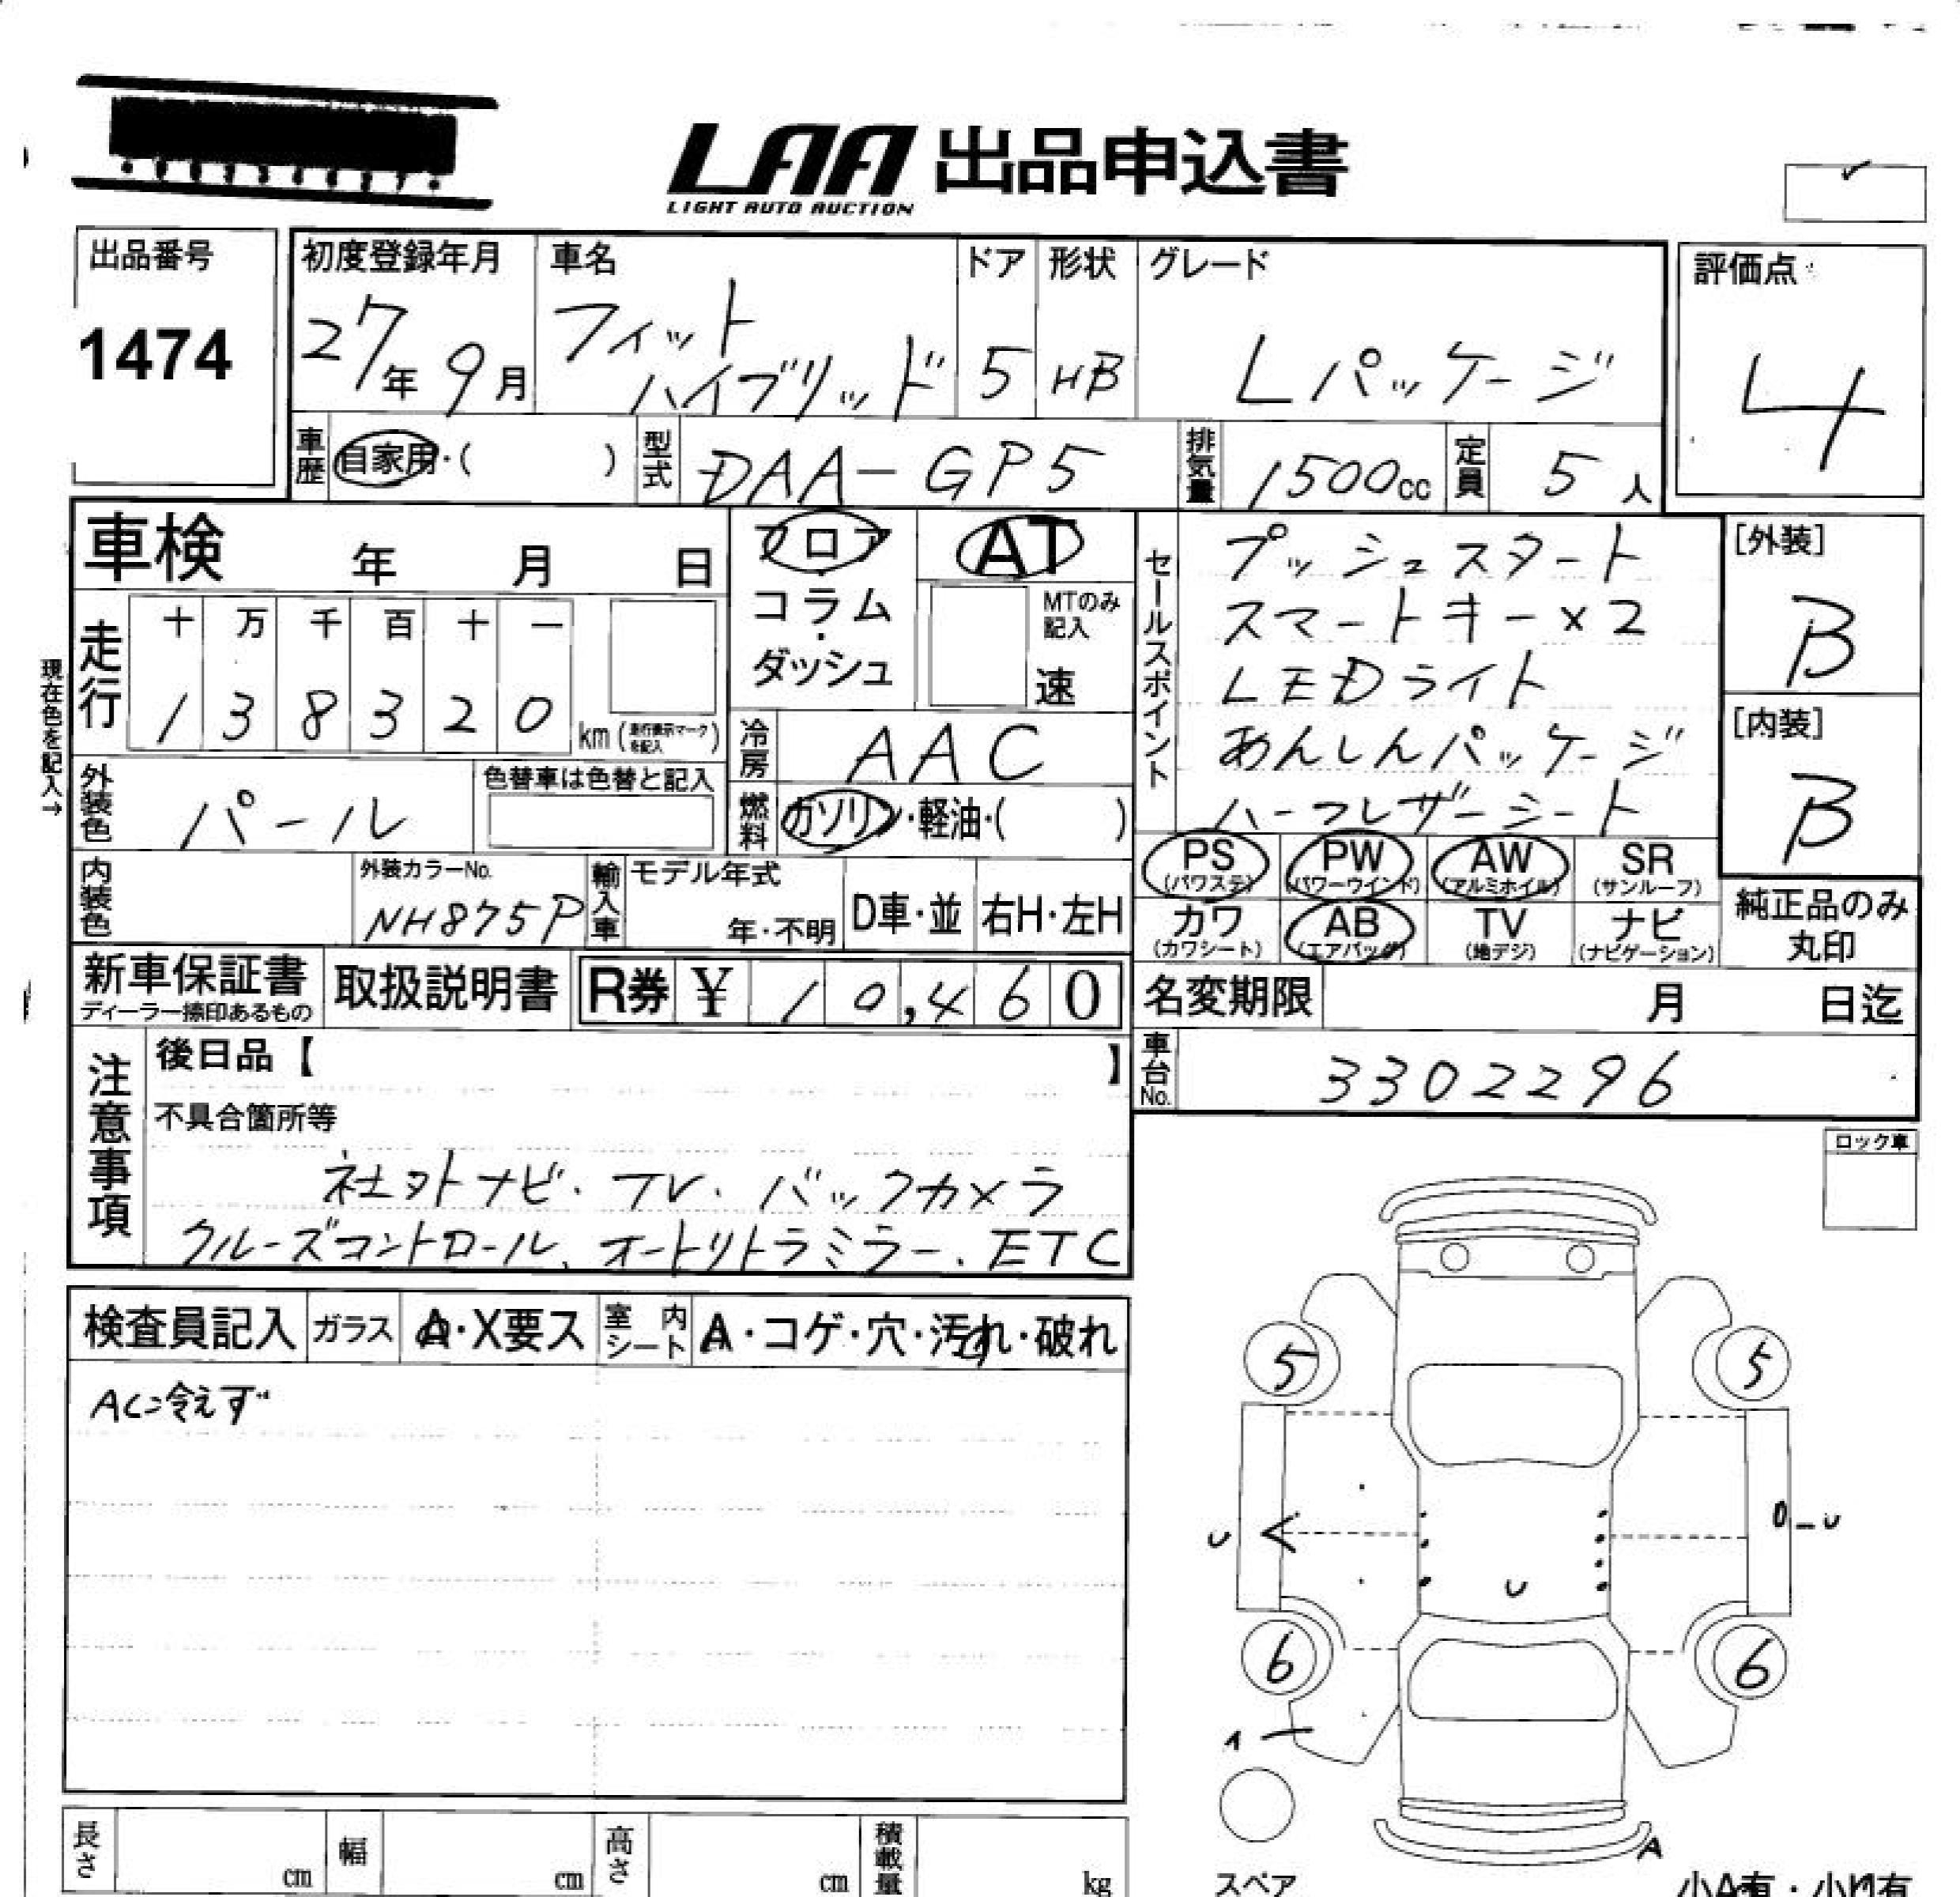 LAA 出品申込書
LIGHT AUTO AUCTION
出品番号
1474
初度登録年月
27年 9月
車名
フィット
ハイブリッド
ドア
5
形状
HB
グレード
Lパッケージ
評価点
4
車歴
自家用・(　　)
型式
DAA-GP5
排気量
1500cc
定員
5人
車検　年　月　日
フロア
・
コラム
・
ダッシュ
AT
MTのみ
記入
速
セールスポイント
プッシュスタート
スマートキー×2
LEDライト
あんしんパッケージ
ハーフレザーシート
[外装]
B
[内装]
B
現在色を記入→
走行
十 万 千 百 十 一
1 3 8 3 2 0
km (走行表示マークを記入)
冷房
AAC
外装色
パール
色替車は色替と記入
燃料
ガソリン・軽油・(　　)
PS
(パワステ)
PW
(パワーウインド)
AW
(アルミホイル)
SR
(サンルーフ)
カワ
(カワシート)
AB
(エアバッグ)
TV
(地デジ)
ナビ
(ナビゲーション)
純正品のみ
丸印
内装色
外装カラーNo.
NH875P
輸入車
モデル年式
年・不明
D車・並
右H・左H
新車保証書
ディーラー捺印あるもの
取扱説明書
R券 ¥ 10,460
名変期限　月　日迄
車台No.
3302296
注意事項
後日品【　　】
不具合箇所等
社外ナビ・TV・バックカメラ
クルーズコントロール、オートリトラミラー、ETC
ロック車
検査員記入
ガラス
A・X要ス
室内シート
A・コゲ・穴・汚れ・破れ
AC冷えず
5
5
U
U
U
6
6
A
スペア
長さ　cm
幅　cm
高さ　cm
積載量　kg
小A有・小U有